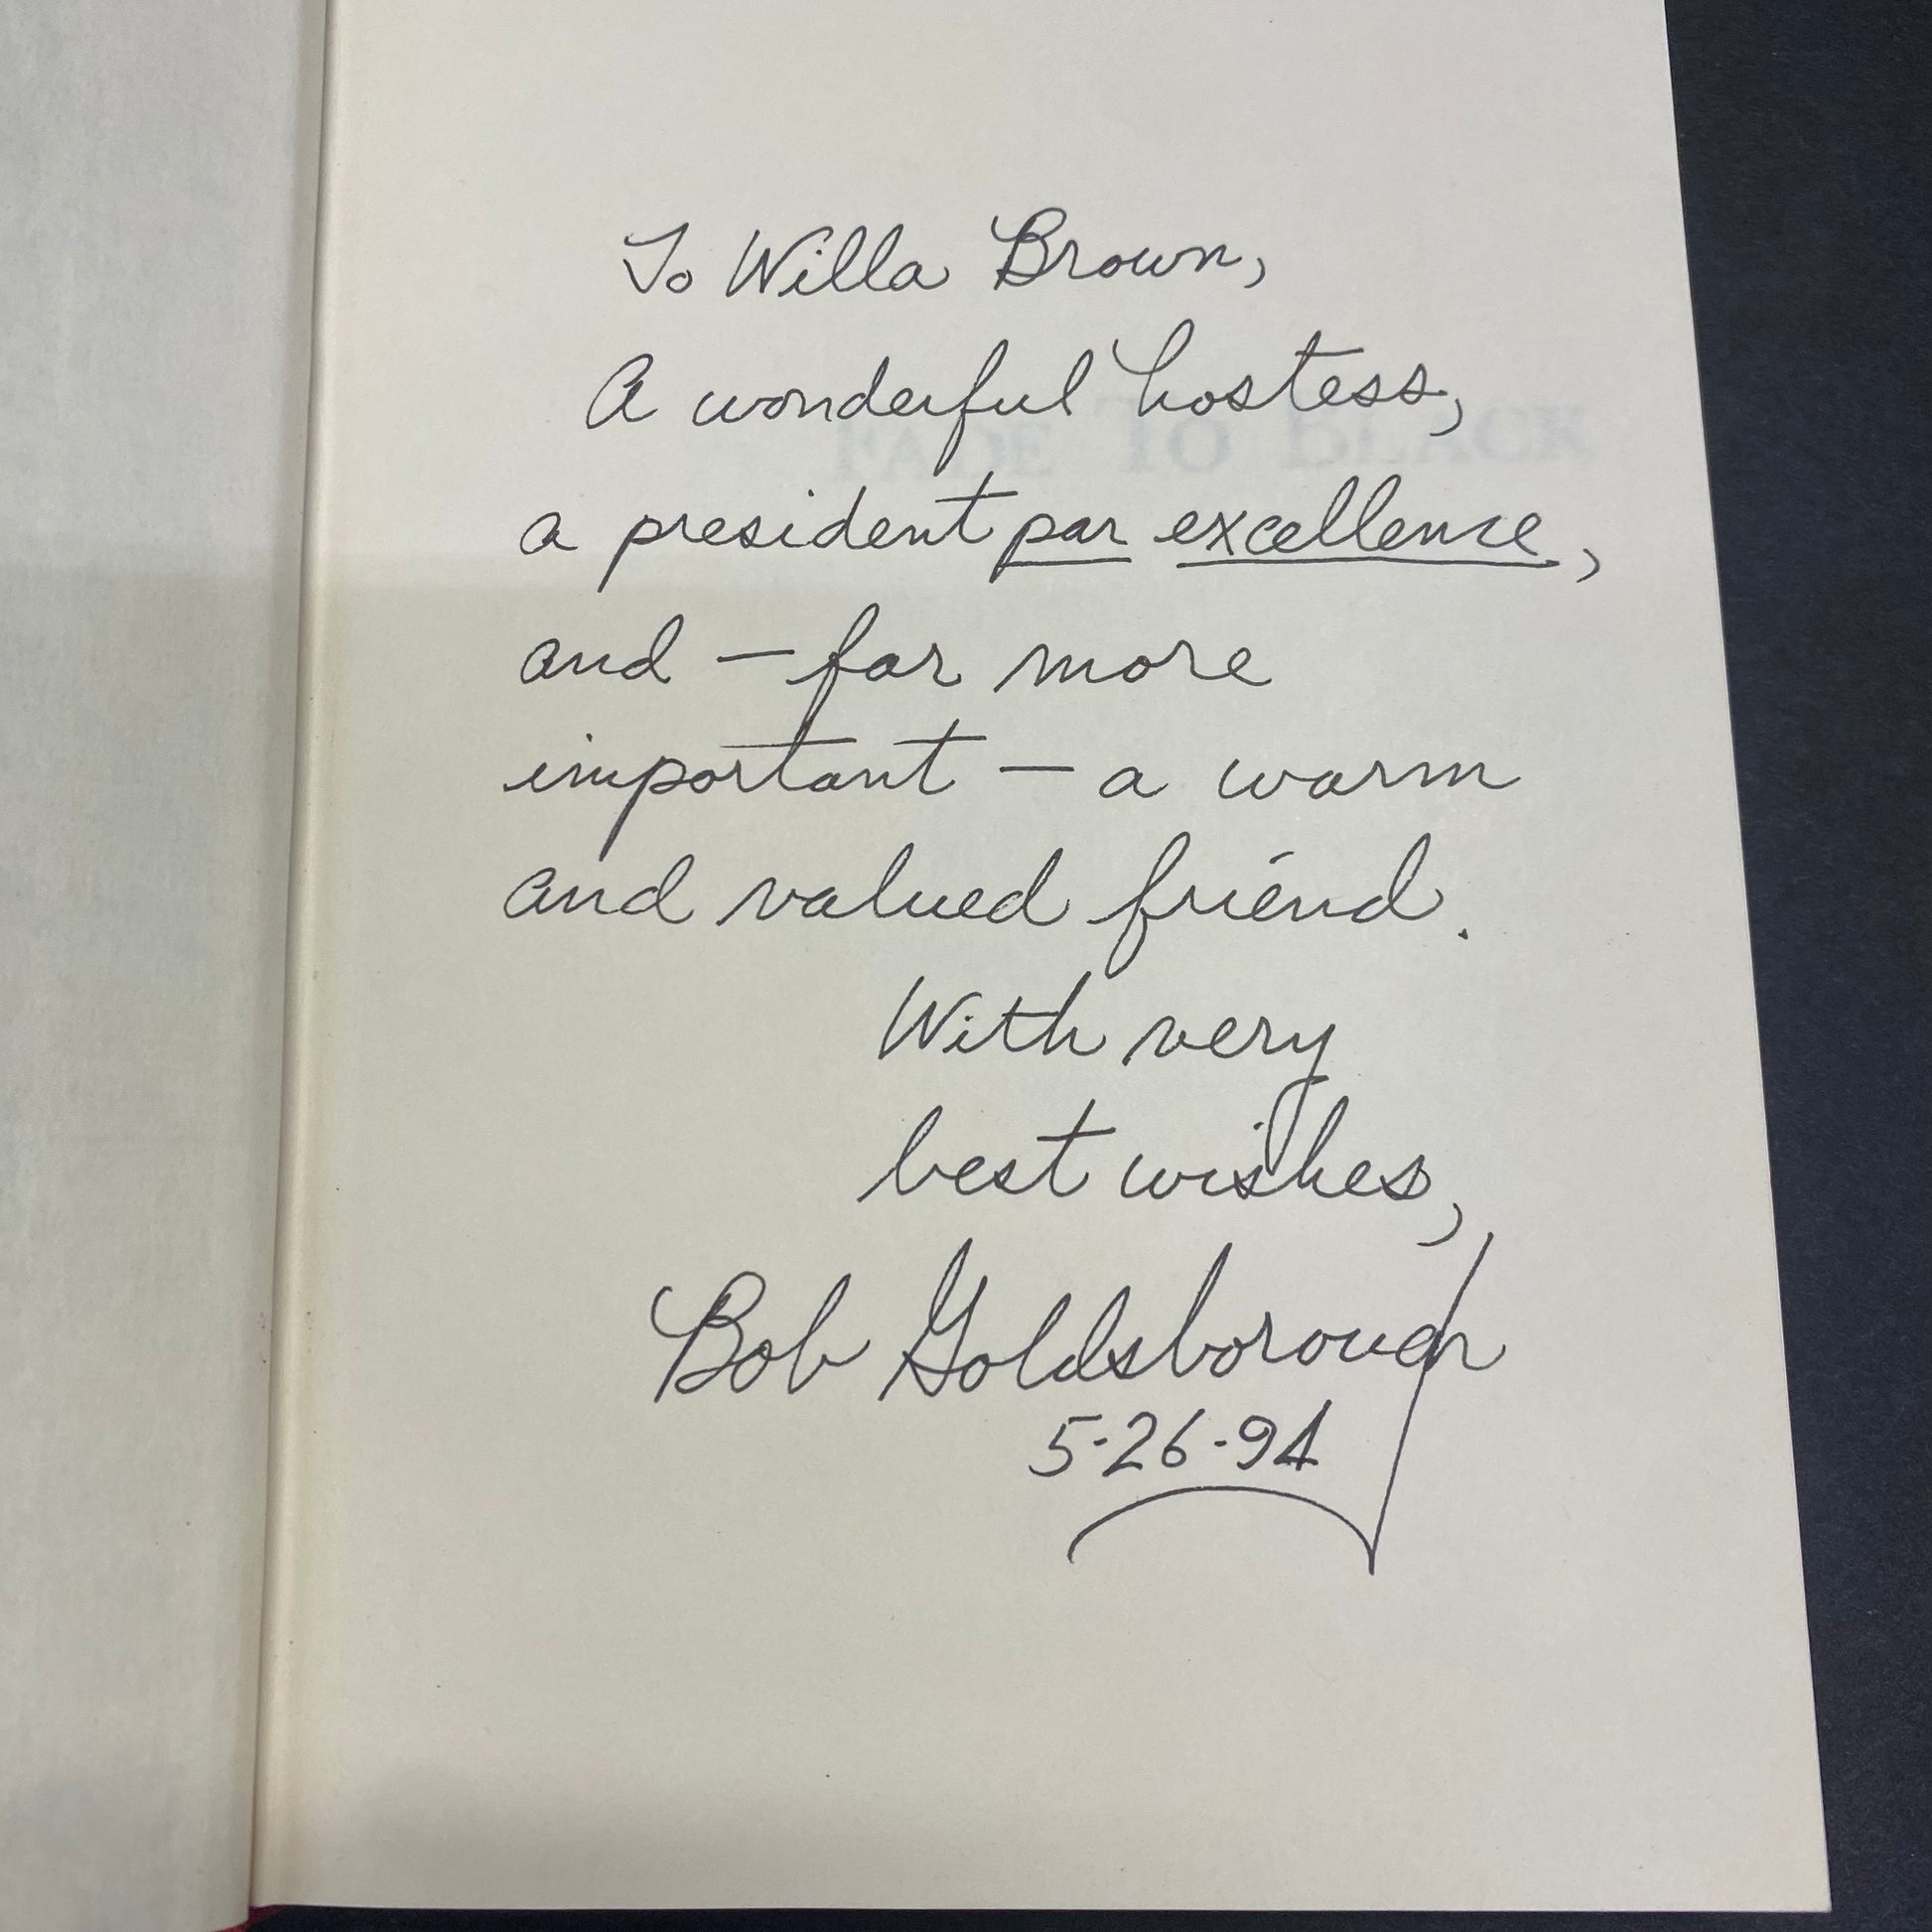 To Willa Brown,
A wonderful hostess,
FADE TO BLACK
a president par excellence,
and — far more
important — a warm
and valued friend.
With very
best wishes,
Bob Goldsborough
5-26-94